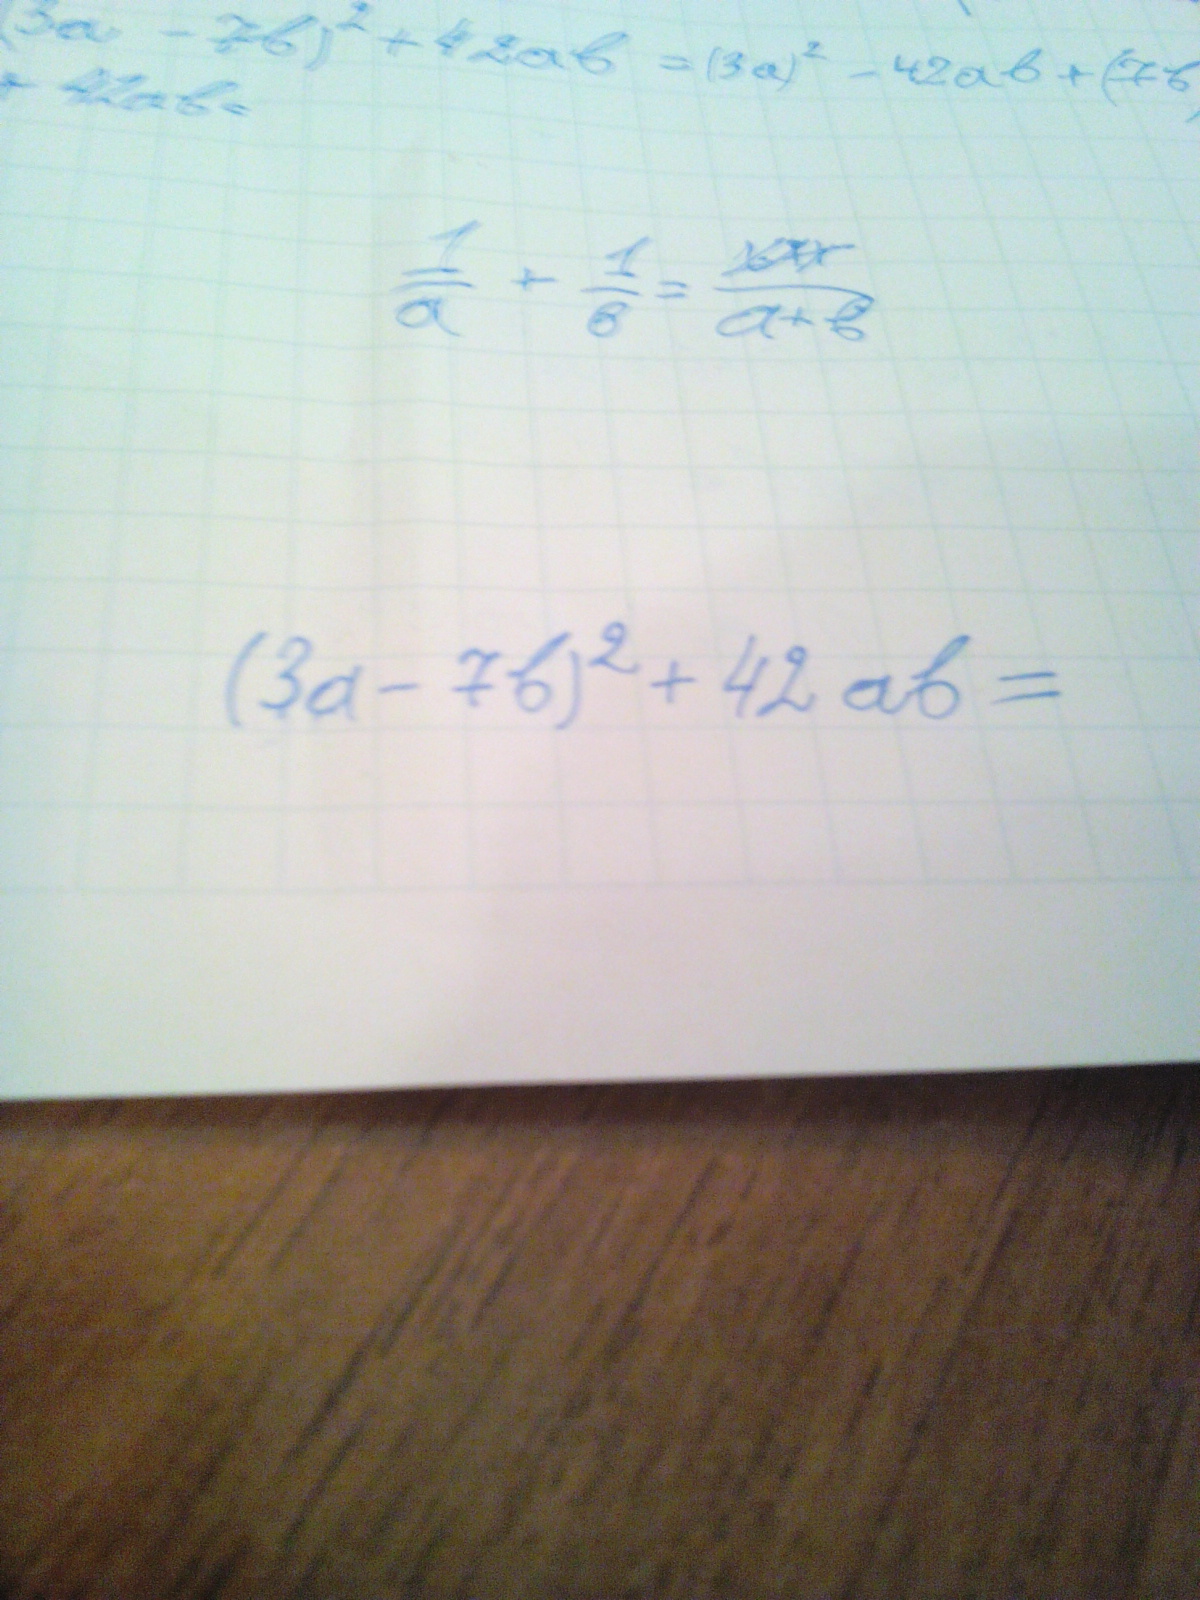 (3a - 7b)² + 42ab = (3a)² - 42ab + (7b)
+ 42ab =
1/a + 1/b = /a+b
(3a - 7b)² + 42ab =